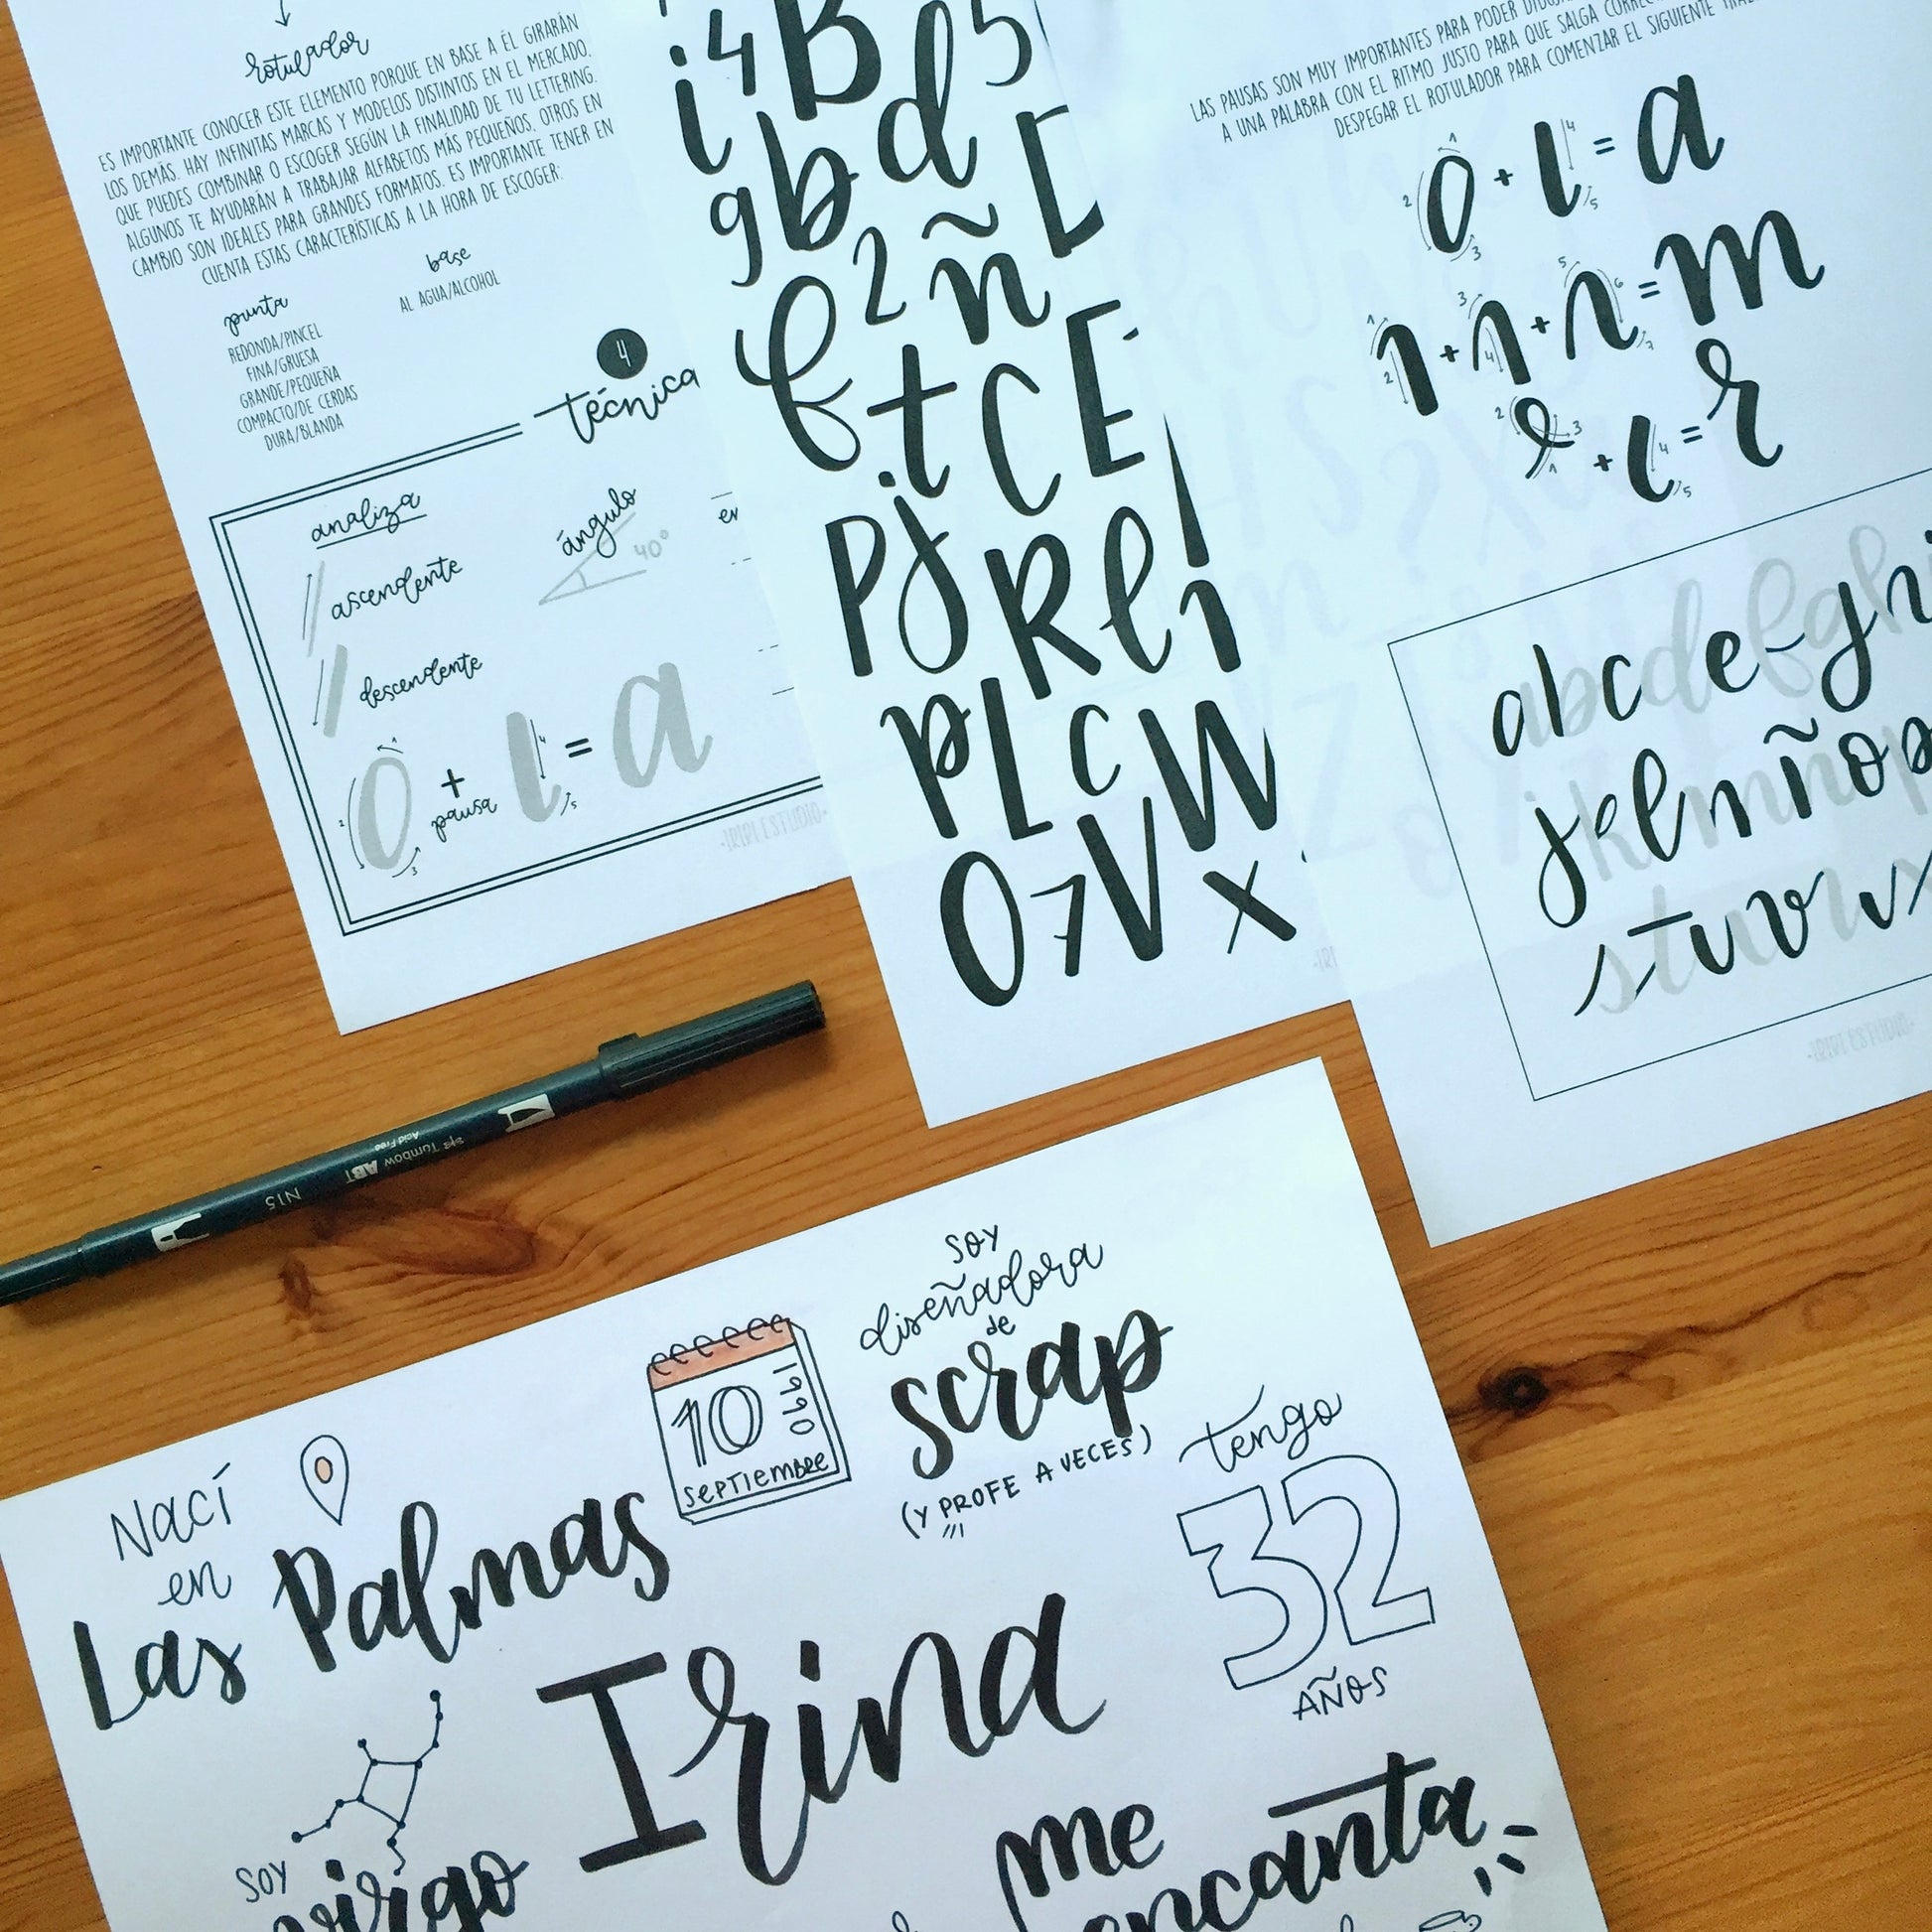 rotulador
ES IMPORTANTE CONOCER ESTE ELEMENTO PORQUE EN BASE A ÉL GIRARÁN
LOS DEMÁS. HAY INFINITAS MARCAS Y MODELOS DISTINTOS EN EL MERCADO,
QUE PUEDES COMBINAR O ESCOGER SEGÚN LA FINALIDAD DE TU LETTERING.
ALGUNOS TE AYUDARÁN A TRABAJAR ALFABETOS MÁS PEQUEÑOS, OTROS EN
CAMBIO SON IDEALES PARA GRANDES FORMATOS. ES IMPORTANTE TENER EN
CUENTA ESTAS CARACTERÍSTICAS A LA HORA DE ESCOGER:
punta
REDONDA/PINCEL
FINA/GRUESA
GRANDE/PEQUEÑA
COMPACTO/DE CERDAS
DURA/BLANDA
base
AL AGUA/ALCOHOL
4
técnica
analiza
ascendente
descendente
ángulo
40°
en
O + l = a
pausa
i 4 B 5
g b d [
f 2 ñ
t C E
P j R l !
p L c W 1
O 7 V x
LAS PAUSAS SON MUY IMPORTANTES PARA PODER
A UNA PALABRA CON EL RITMO JUSTO PARA QUE SALGA
DESPEGAR EL ROTULADOR PARA COMENZAR EL SIGUIENTE
O + l = a
1 + n + n = m
+ l = r
abcdefghi
jklmnñop
stuvwx
N15
Tombow ABT
Acid Free
Nací
en
Las Palmas
10
1990
SepTiembre
soy
diseñadora
de
scrap
(Y PROFE A VECES)
tengo
32
AÑOS
Irina
SOY
virgo
me
encanta